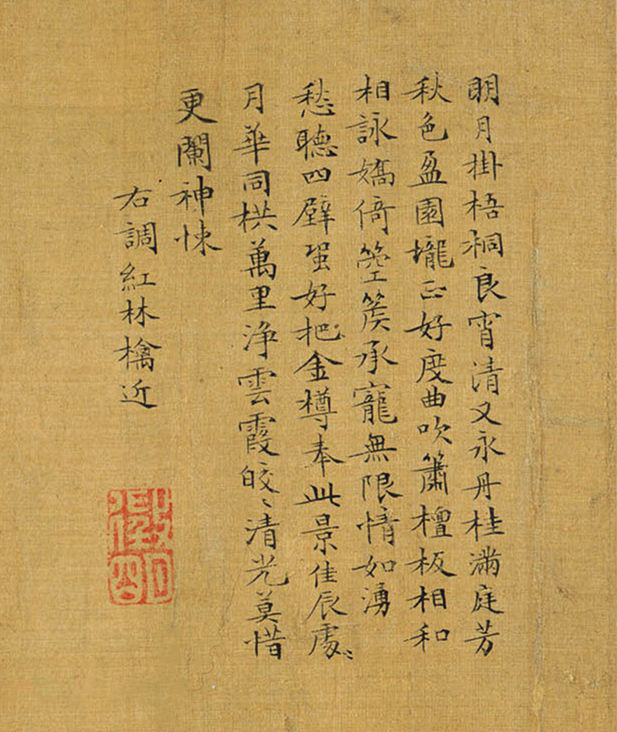 明月掛梧桐良宵清又永丹桂滿庭芳
秋色盈園壠正好度曲吹簫檀板相和
相詠嬌倚箜篌承寵無限情如湧
愁聽四壁蛩好把金樽奉此景佳辰處〻
月華同栱萬里淨雲霞皎〻清光莫惜
更闌神悚
右調紅林檎近